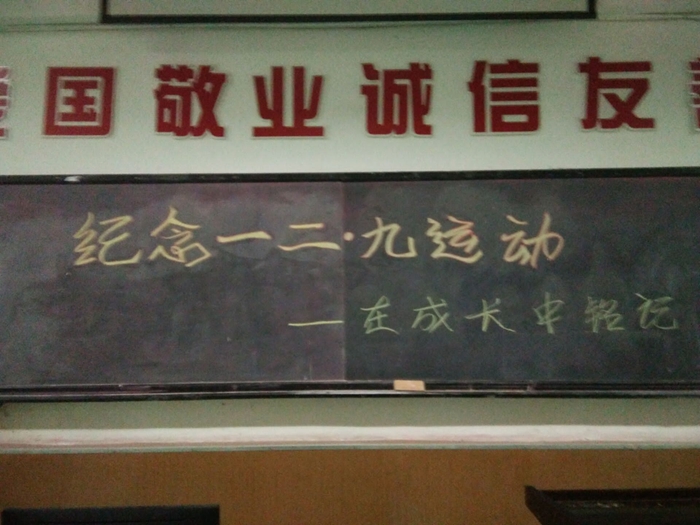 國敬业诚信友
纪念一二·九运动
—在成长中铭记